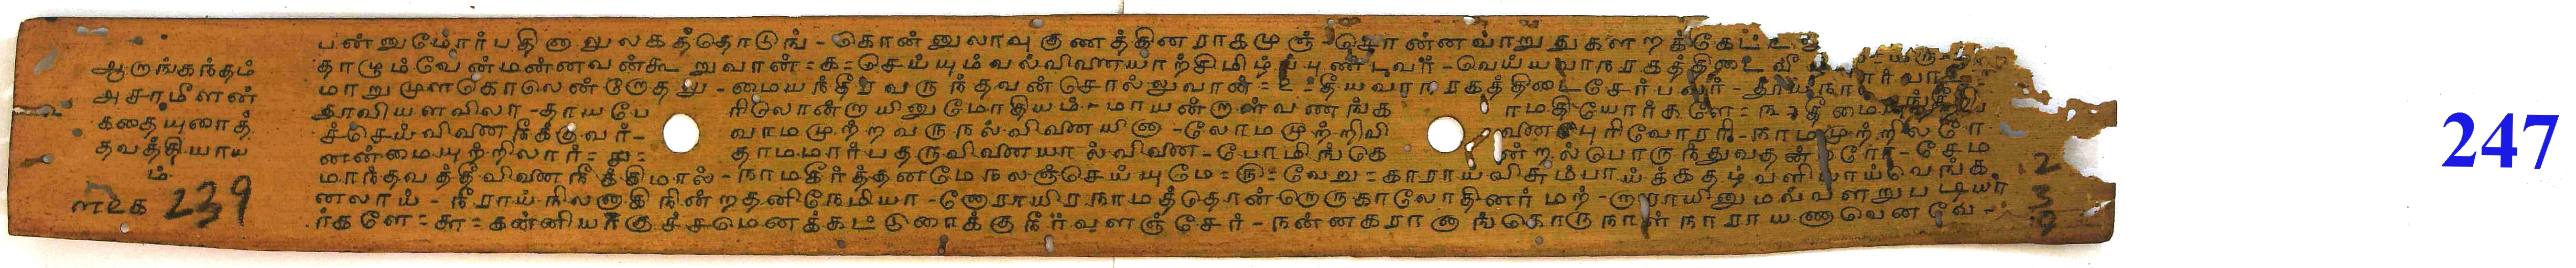 ஆருங்கந்தம்
அசாமீளன்
கதையுரைத்
தவத்தியாய
ம்
ளஉக 239
பன்னுமோர்பதினாலுலகத்தொடுங் - கொன்னுலாவு குணத்தினராகமுஞ் - சொன்னவாறு துகளறக்கேட்ட
தாழும்வேன்மன்னவன்கூறுவான் = க = செய்யும்வல்வினையாற்சிமிழ்ப்புண்டவர் - வெய்யவாநரகத்திடைவீ
மாறுமுளகொலென்றோது - மையநீதீரவருந்தவன்சொல்லுவான் = உ = தீயவாநரகத்திடைசேர்பவர் - தாய்நா
தாவியளவிலா - தாயபே ரிலொன்றாயினுமோதியம் - மாயன்றன்வணங்க ரமதியோர்களே = ௩ = தீமை
ச்செய்வினைநீக்குவர் - வாமமுற்றவருநல்வினையினா - லோமமுற்றிவி னைபுரிவோரரி - நாமமுற்றில
னன்மையுற்றிலார் = ச = தாமமார்பதருவினையால்வினை - போமிங்கெ ன்றல்பொருந்துவதன்றோர் - சேம
மாந்தவத்தீவினைநீத்திமால் - நாமகீர்த்தனமேநலஞ்செய்யுமே = ரு = வேறு = காராய்விசும்பாய்க்கதழ்வளியாய்வெங்க
னலாய் - நீராய்நிலனாகிநின்றதனிநேமியா - ணோராயிரநாமத்தொன்றொருகாலோதினர் மற் - றாராயினுமவ்வளறுபடியா
ர்களே = சு = கன்னியாகுச்சமெனக்கட்டுரைக்குநீர்வளஞ்சேர் - நன்னகரானாங்கொருநாள்நாராயணாவெனவே -
2
3
9
247